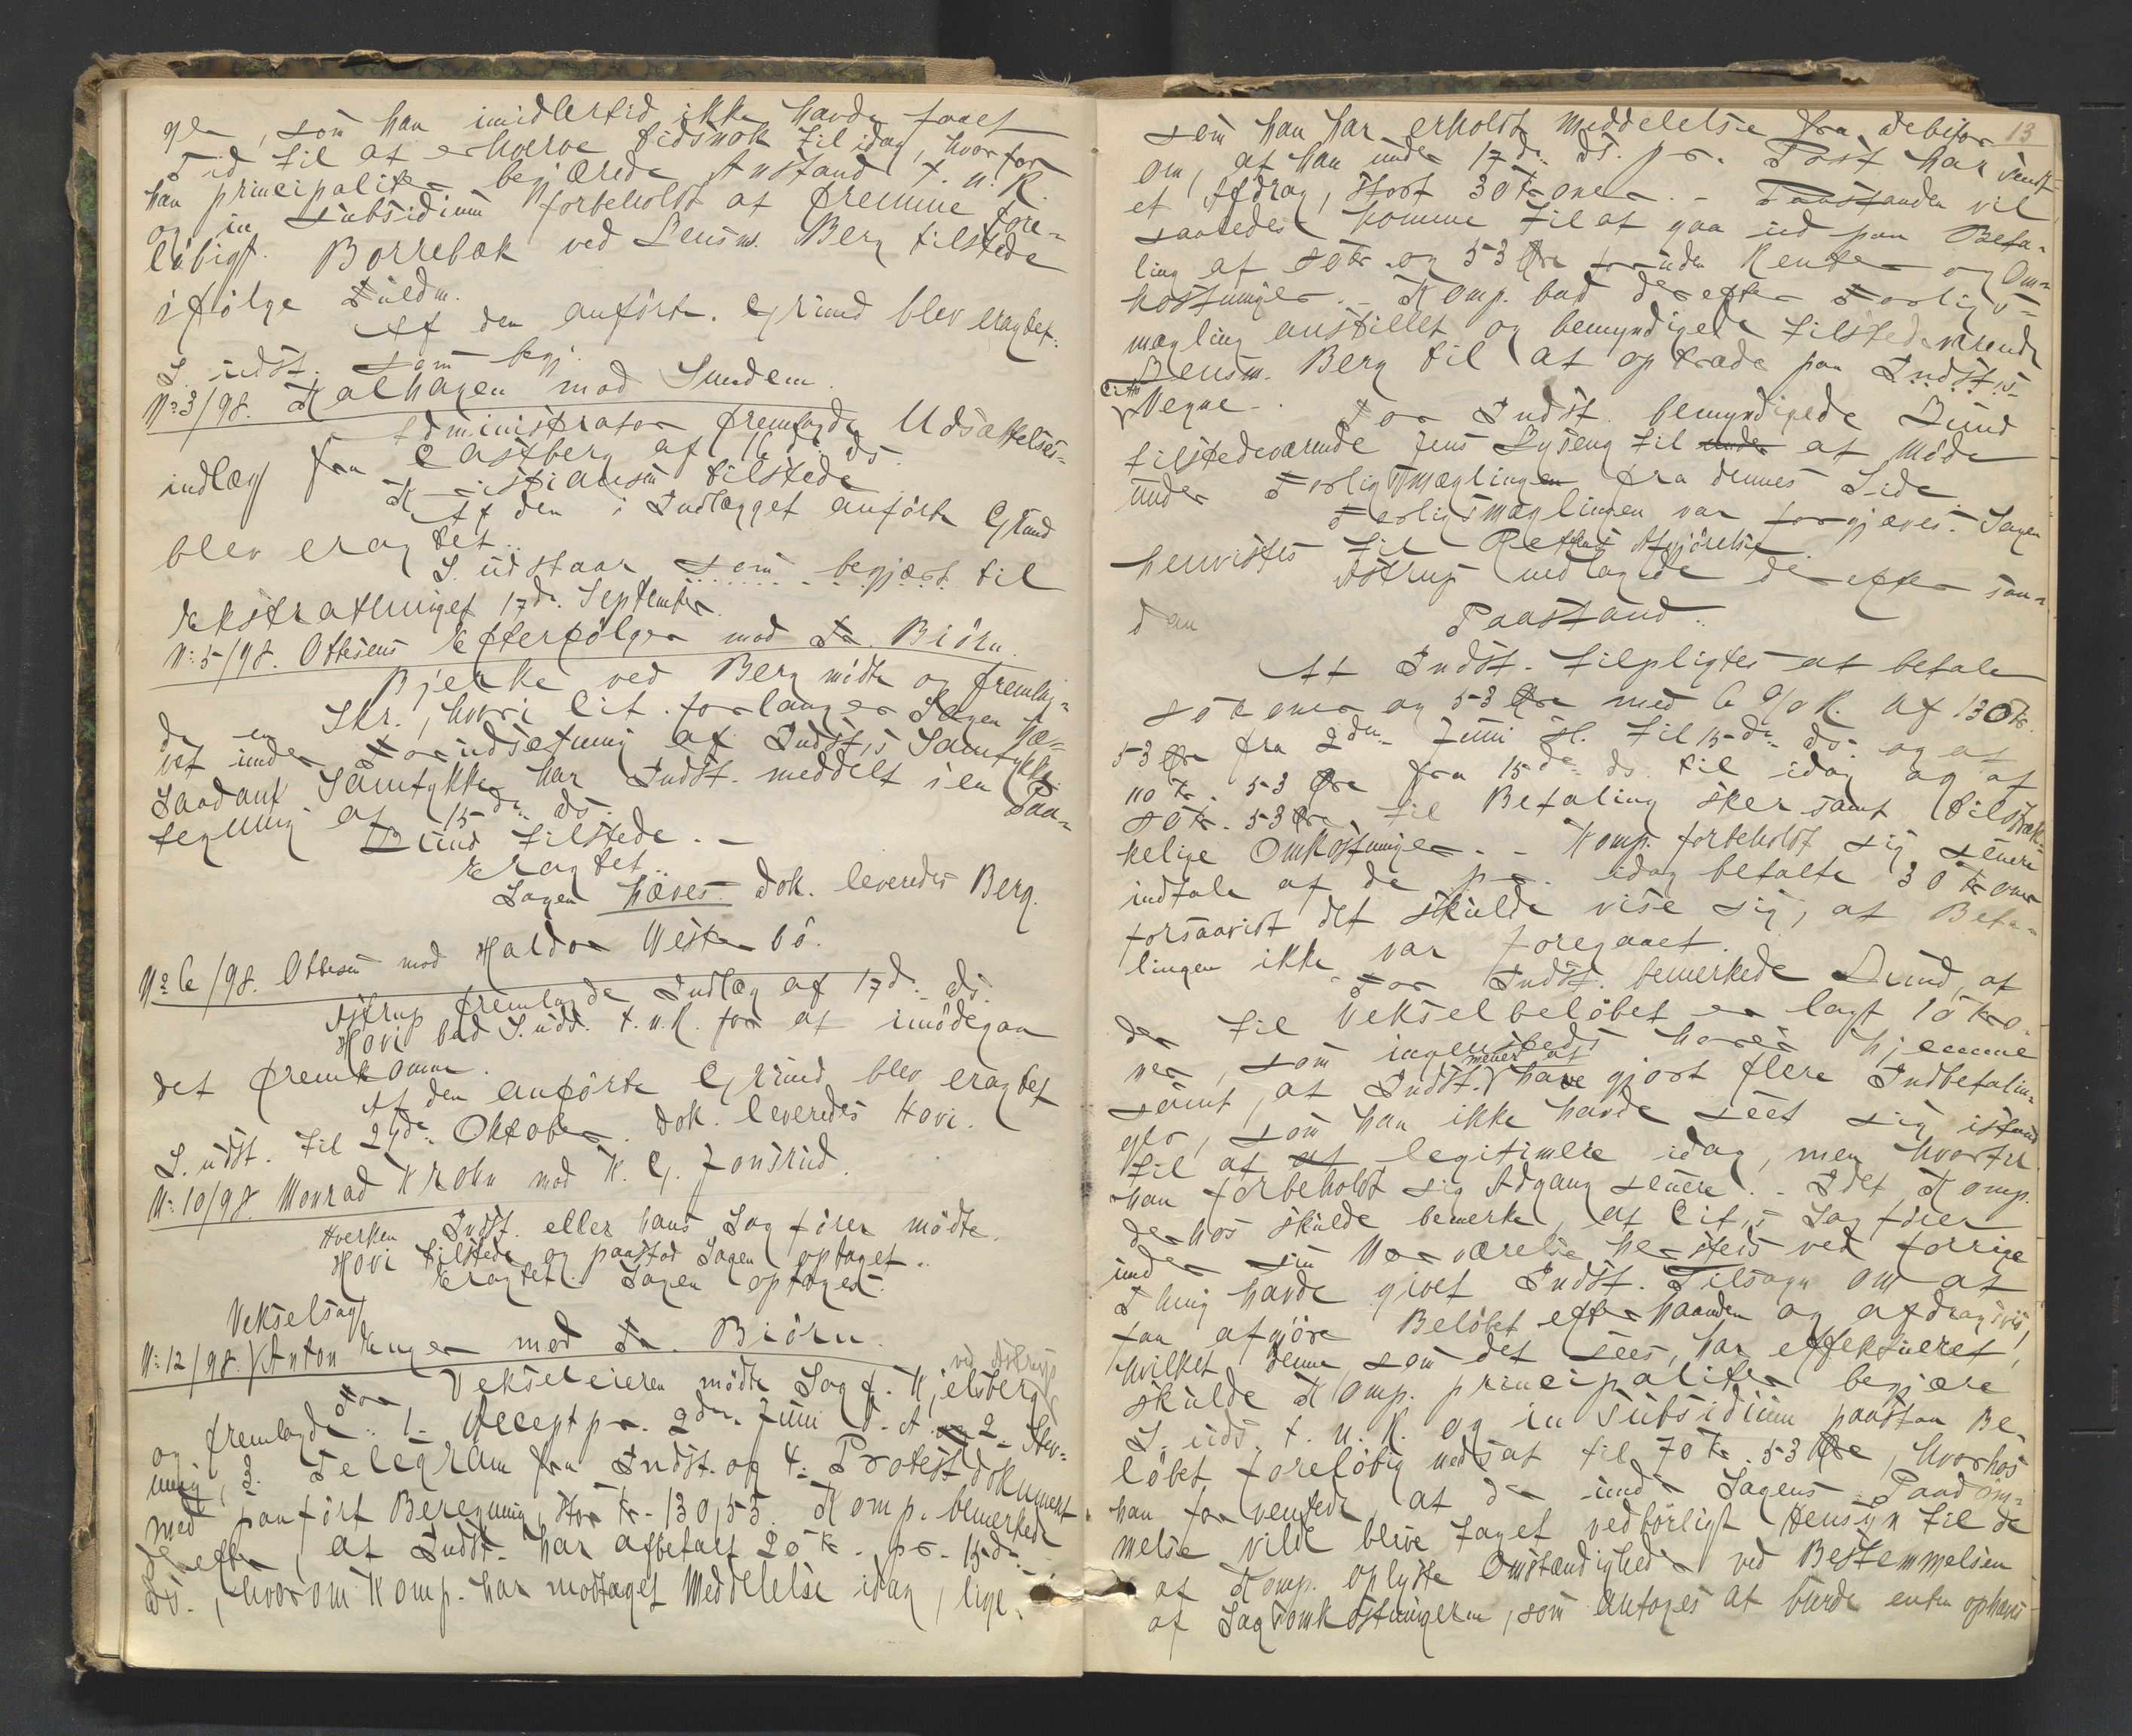 ger, som han imidlertid ikke havde faaet
Tid til at erhverve tidsnok til idag, hvorfor
han principaliter begjærede Anstand t. n. R.
og in subsidium forbeholdt at fremme fore-
løbigt. Borrebæk ved Lensm. Berg tilstede
ifølge Fuldm.
Af den anførte Grund blev eragtet:
S. udst. som begj.
No 3/98. Kalhagen mod Sundem.
Administrator fremlagde Udsættelses-
indlæg fra Castberg af 16de ds.
Kristiansen tilstede
Af den i Indlægget anførte Grund
blev eragtet:
S. udstaar som begjært til
Ekstrathinget 17de September.
No 5/98. Ottesens Efterfølger mod Fr. Biørn.
Bjerke ved Berg mødte og fremlag-
de en Skr., hvori Cit. forlanger Sagen hæ-
vet under Forudsætning af Indst.s Samtykke.
Saadant Samtykke har Indst. meddelt i en Paa-
tegning af 15de ds.
Lund tilstede. -
Eragtet:
Sagen hæves. Dok. leveredes Berg.
No 6/98. Ottesen mod Haldor Vesterbø.
Astrup fremlagde Indlæg af 17de ds.
Hovi bad S. uds. t. n. R. for at imødegaa
det fremkomne.
Af den anførte Grund blev eragtet
S. udst. til 29de Oktober. Dok. leveredes Hovi.
No 10/98. Monrad Krohn mod K. G. Jonsrud.
Hverken Indst. eller hans Sagfører mødte.
Hovi tilstede og paastod Sagen optaget.
Eragtet: Sagen optages.
Vekselsag
No 12/98. Anton Enger mod Fr. Biørn.
ved Astrup
For Vekseleieren mødte Sagf. Kjelsberg
og fremlagde: 1. Accept pr. 2den Juni d. A. og 2. Stev-
ning, 3. Telegram fra Indst. og 4. Protestdokument
med paaført Beregning, stor Kr. 130,53. Komp. bemerkede
derefter, at Indst. har afbetalt 20 Kr. pr. 15de
ds., hvorom Komp. har modtaget Meddelelse idag, lige-
13
som han har erholdt Meddelelse fra Debitor
om, at han under 17de ds. pr. Post har sendt
et Afdrag, stort 30 Kroner. - Paastanden vil
saaledes komme til at gaa ud paa Beta-
ling af 80 Kr. og 53 Øre foruden Renter og Om-
kostninger. - Komp. bad derefter Forligs-
mægling anstillet og bemyndigede tilstedeværende
Lensm. Berg til at optræde paa Indst.s
Cit.s
Vegne.
For Indst. bemyndigede Lund
tilstedeværende Jens Lyseng til under at møde
under Forligsmæglingen fra dennes Side.
Forligsmæglingen var forgjæves. Sagen
henvistes til Rettens Afgjørelse.
Astrup nedlagde derefter saa-
dan
Paastand:
At Indst. tilpligtes at betale
80 Kroner og 53 Øre med 6 % R. af 130 Kr.
53 Øre fra 2den Juni sl. til 15de ds. og af
110 Kr. 53 Øre fra 15de ds. til idag og af
80 Kr. 53 Øre til Betaling sker samt tilstræk-
kelige Omkostninger. - Komp. forbeholdt sig senere
indtale af de pr. idag betalte 30 Kroner
forsaavidt det skulde vise sig, at Beta-
lingen ikke var foregaaet.
For Indst. bemerkede Lund, at
der til Vekselbeløbet er lagt 10 Kro-
ner, som ingensteds hører hjemme
samt, at Indst. mener at have gjort flere Indbetalin-
ger, som han ikke havde seet sig istand
til at at legitimere idag, men hvortil
han forbeholdt sig Adgang senere. - Idet Komp.
derhos skulde bemerke, at Cit.s Sagfører
under sin Nærværelse hersteds ved forrige
Thing havde givet Indst. Tilsagn om at
faa afgjøre Beløbet efterhaanden og afdragsvis,
hvilket denne, som det sees, har effektueret,
skulde Komp. principaliter begjære
S. uds. t. n. R. og in subsidium paastaa Be-
løbet foreløbig nedsat til 70 Kr. 53 Øre, hvorhos
han forventede, at der under Sagens Paadøm-
melse vilde blive taget vedbørligt Hensyn til de
af Komp. oplyste Omstændigheder ved Bestemmelsen
af Sagsomkostningerne, som antoges at burde enten ophæves